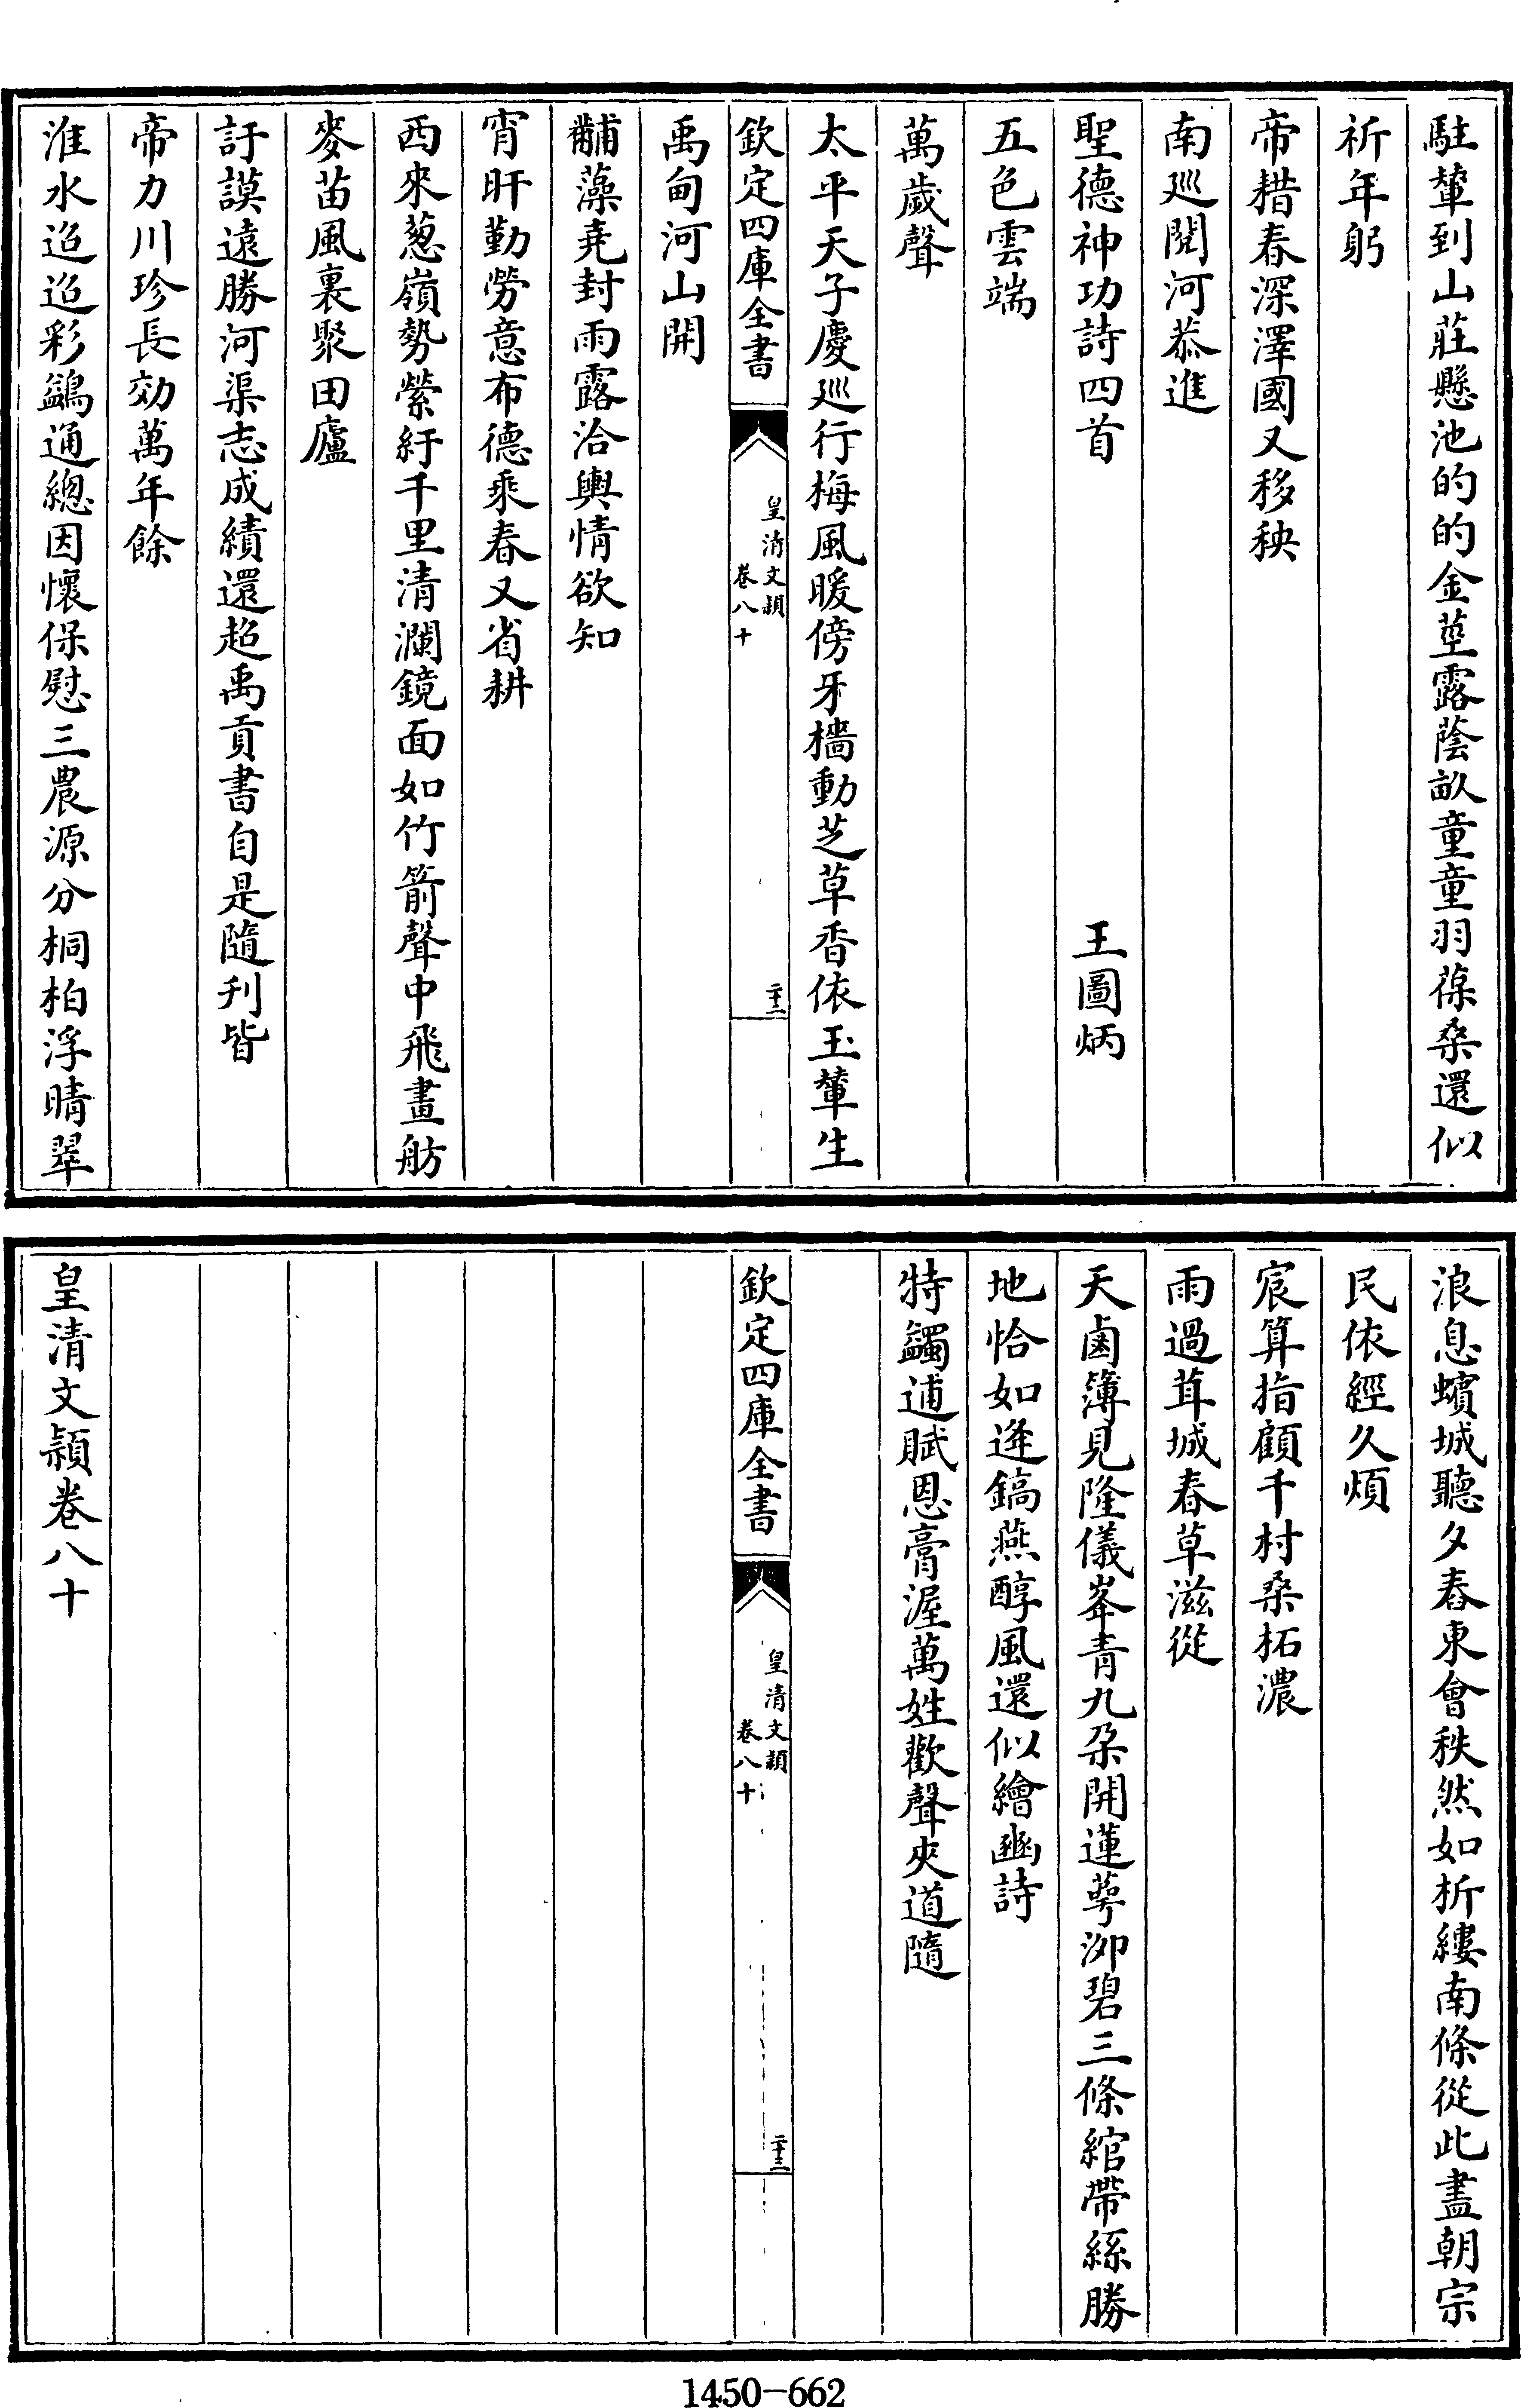 駐輦到山莊懸池的的金莖露蔭畝童童羽葆桑還似
祈年躬
帝耤春深澤國又移秧
南廵閱河恭進
聖德神功詩四首　王圖炳
五色雲端
萬歲聲
太平天子慶廵行梅風暖傍牙檣動芝草香依玉輦生
欽定四庫全書
皇清文穎
卷八十
二十二
禹甸河山開
黼藻堯封雨露洽輿情欲知
宵旰勤勞意布德乘春又省耕
西來葱嶺勢縈紆千里清瀾鏡面如竹箭聲中飛畫舫
麥苗風裏聚田廬
訏謨遠勝河渠志成績還超禹貢書自是隨刋皆
帝力川珍長効萬年餘
淮水迢迢彩鷁通總因懷保慰三農源分桐柏浮晴翠
浪息蠙城聽夕舂東會秩然如析縷南條從此盡朝宗
民依經久煩
宸算指顧千村桑柘濃
雨過茸城春草滋從
天鹵簿見隆儀峯青九朶開蓮蕚泖碧三條綰帶絲勝
地恰如逢鎬燕醇風還似繪豳詩
特蠲逋賦恩膏渥萬姓歡聲夾道隨
欽定四庫全書
皇清文穎
卷八十
二十三
皇清文穎卷八十
1450-662